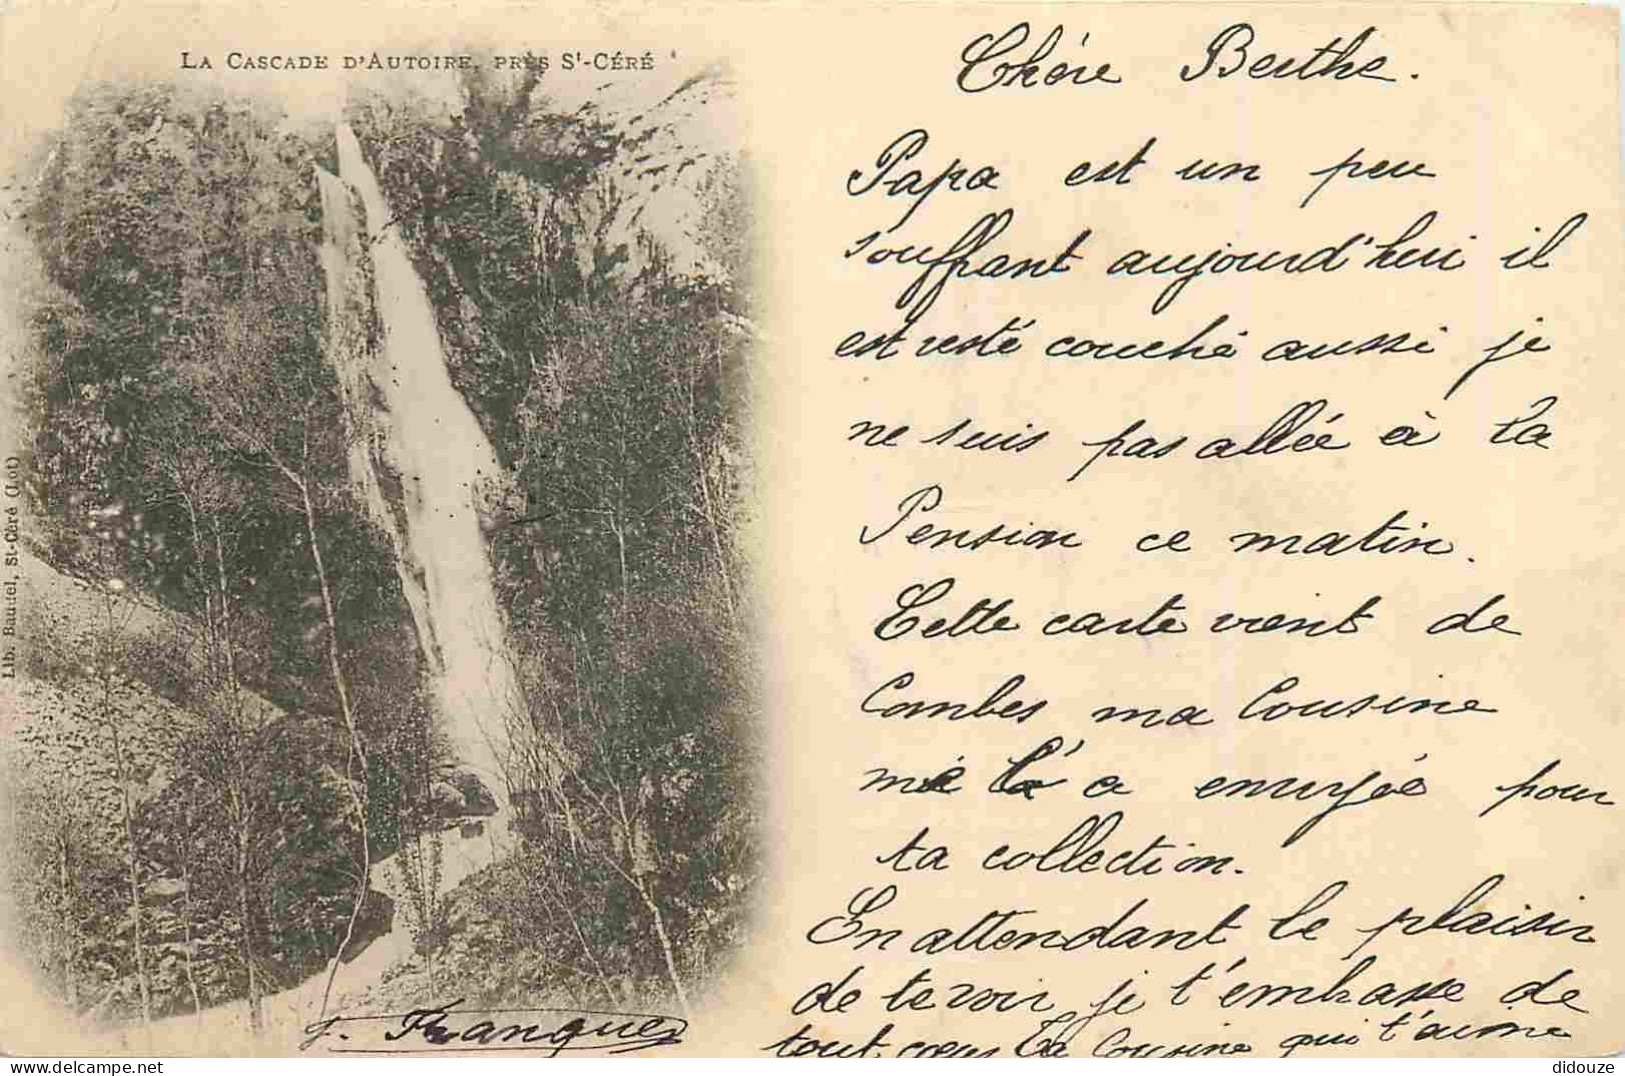 LA CASCADE D'AUTOIRE, PRÈS St-CÉRÉ
Lib. Baudel, St-Céré (Lot)
Chére Berthe.
Papa est un peu
souffrant aujourd'hui il
est resté couché aussi je
ne suis pas allée à la
Pension ce matin.
Cette carte vient de
Combes ma Cousine
me l'a envoyée pour
ta collection.
En attendant le plaisir
de te voir je t'embrasse de
tout cœur ta Cousine qui t'aime
F. Franques
didouze